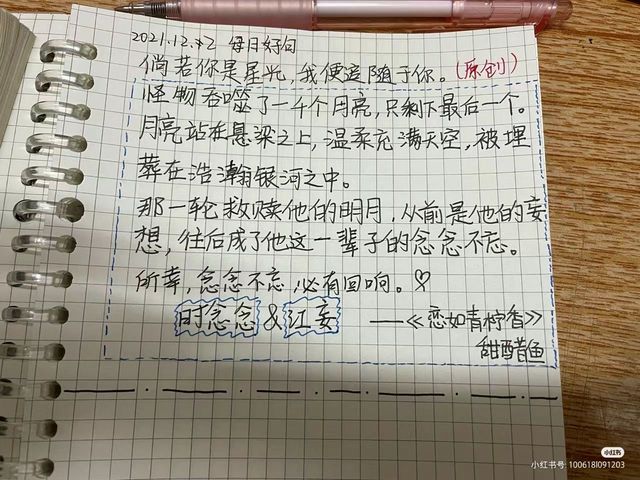 2021.12.12 每日好句
倘若你是星光，我便追随于你。(原创)
怪物吞噬了一千个月亮，只剩下最后一个。
月亮站在悬梁之上，温柔充满天空，被埋
葬在浩瀚银河之中。
那一轮救赎他的明月，从前是他的妄
想，往后成了他这一辈子的念念不忘。
所幸，念念不忘，必有回响。♡
时念念&江妄 ——《恋如青柠香》
甜醋鱼
小红书
小红书号: 100618I091203